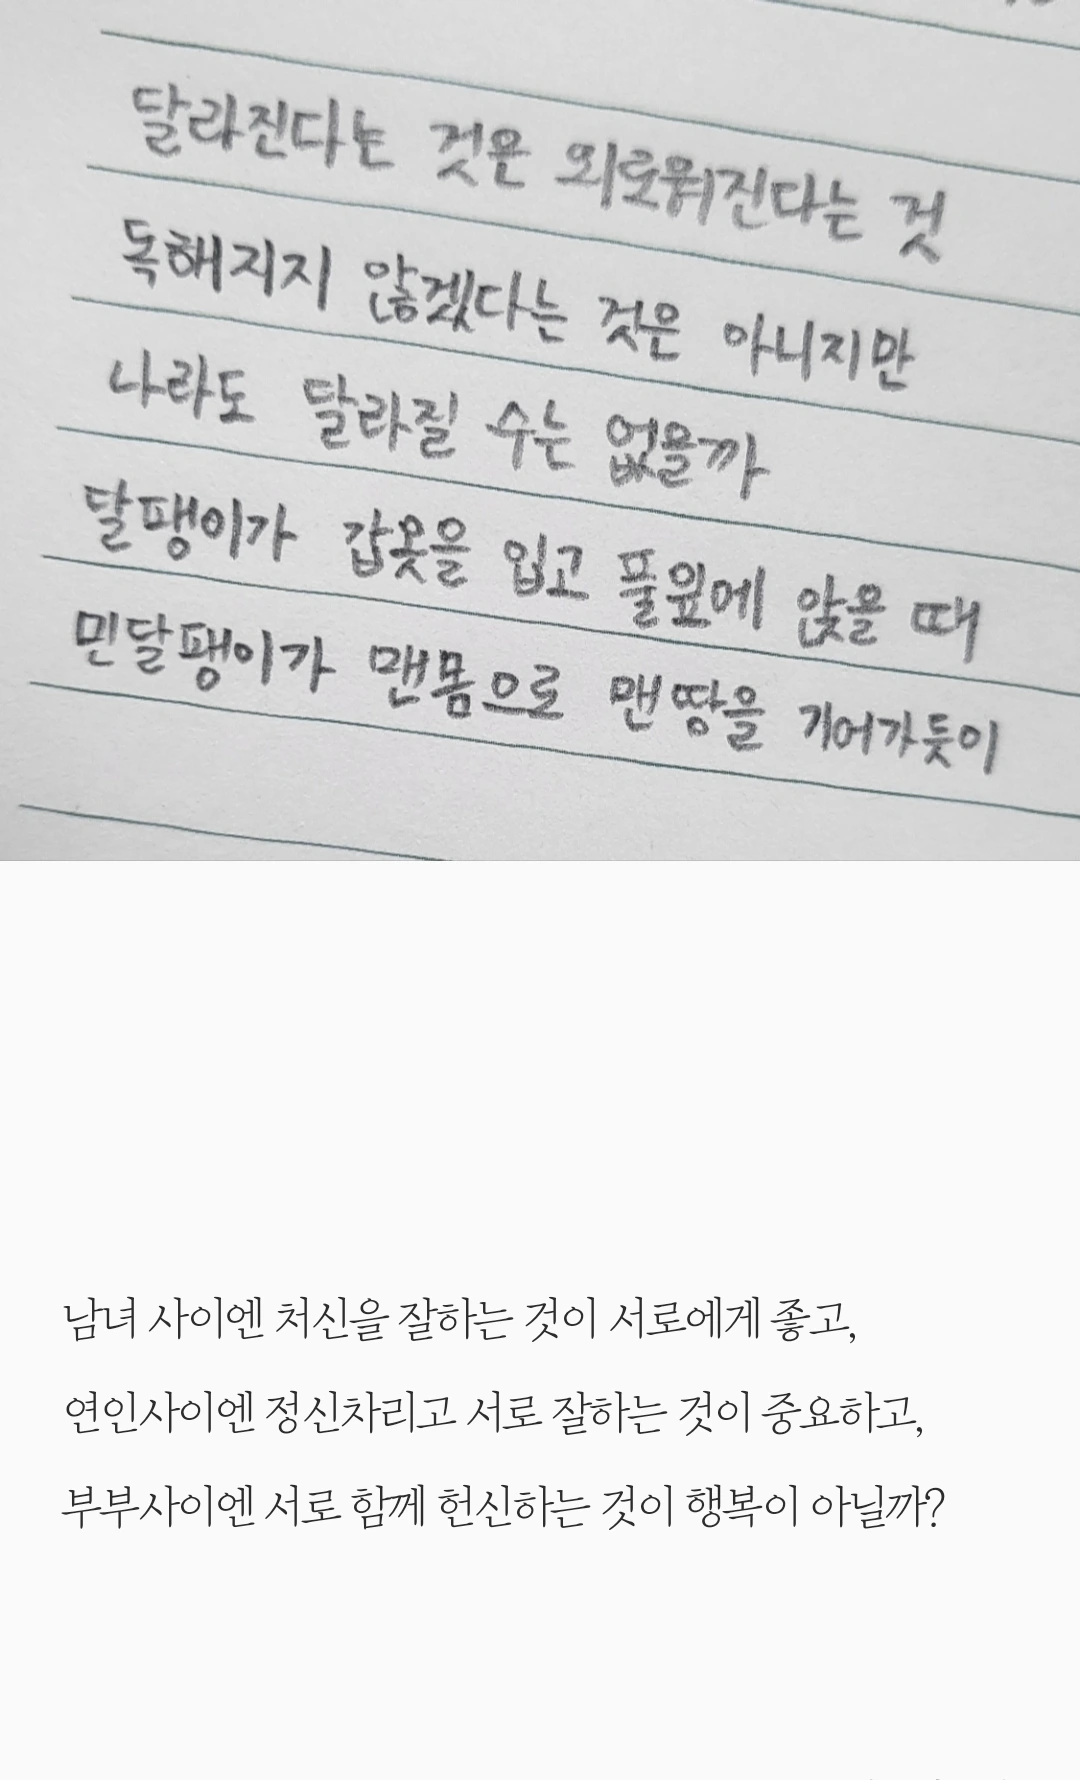 달라진다는 것은 외로워진다는 것
독해지지 않겠다는 것은 아니지만
나라도 달라질 수는 없을까
달팽이가 갑옷을 입고 풀잎에 앉을 때
민달팽이가 맨몸으로 맨땅을 기어가듯이
남녀 사이엔 처신을 잘하는 것이 서로에게 좋고,
연인사이엔 정신차리고 서로 잘하는 것이 중요하고,
부부사이엔 서로 함께 헌신하는 것이 행복이 아닐까?